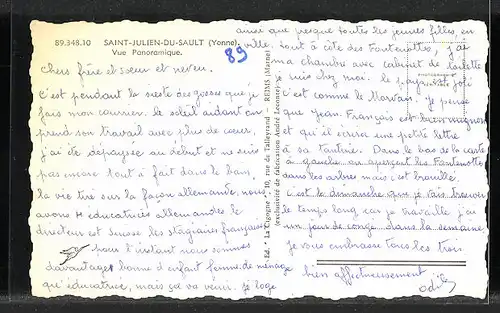 89.348.10 SAINT-JULIEN-DU-SAULT (Yonne)
Vue Panoramique.
89
Chers frère et soeur et neveu.
C'est pendant la sieste des gosses que je
fais mon courrier. Le soleil aidant on
prend son travail avec plus de coeur,
j'ai été dépaysée au début et ne suis
pas encore tout à fait dans le bain.
la vie tire sur la façon allemande, nous
avons 4 éducatrices allemandes le
directeur est suisse les stagiaires françaises
pour l'instant nous sommes
davantage bonne d'enfant femme de ménage
qu'éducatrice, mais ça va venir. je loge
Ed. "La Cigogne" 10, rue de Talleyrand - REIMS (Marne)
(exclusivité de fabrication André Leconte)
ainsi que presque toutes les jeunes filles, en
ville. tout à côté des Fontenottes, j'ai
ma chambre avec cabinet de toilette
je suis chez moi. le pays est joli
c'est comme le Morvan. Je pense
que Jean-François est
et qu'il écrira une petite lettre
à sa tantine. Dans le bas de la carte
à gauche on aperçoit les Fontenottes
dans les arbres mais c'est brouillé.
C'est le dimanche que je vais trouver
le temps long car je travaille j'ai
un jour de congé dans la semaine.
je vous embrasse tous les trois
bien affectueusement
Odile